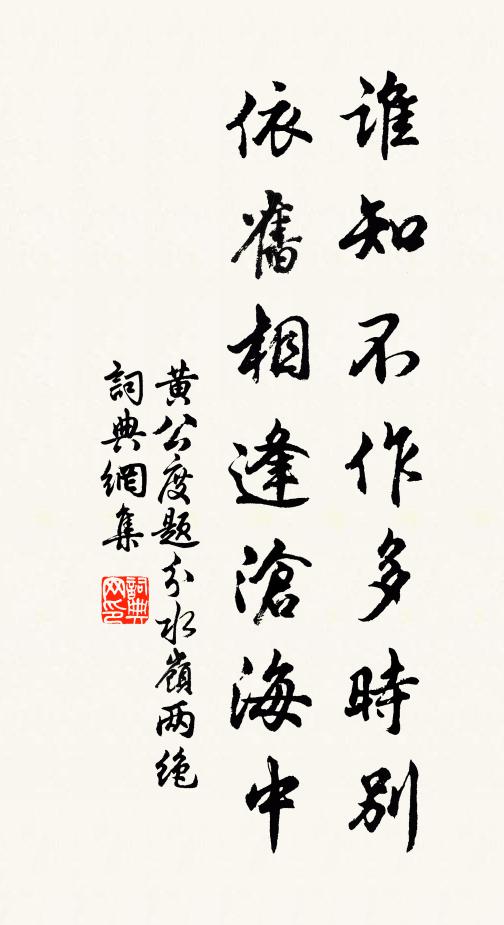 誰知不作多時別
依舊相逢滄海中
黄公度题分水嶺两绝
詞典網集
詞典
网印